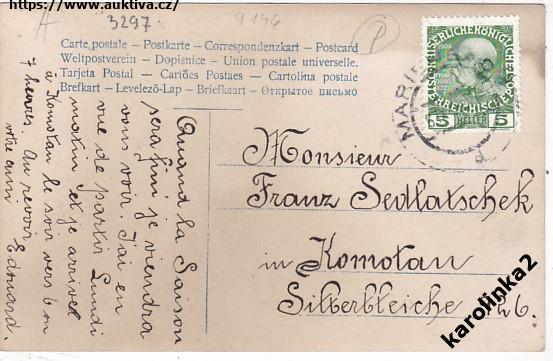 https://www.auktiva.cz/
3297
9146
Carte postale – Postkarte – Correspondenzkart – Postcard
Weltpostverein – Dopisnice – Union postale universelle.
Tarjeta Postal – Cartões Postaes – Cartolina postale
Brefkart – Levelező-Lap – Briefkaart – Открытое письмо
P
MARIE
5 HELLER 5
Quand la Saison
sera fini je viendra
vous voir. J'ai en
vue de partir Lundi
matin et je arrivet
à Komotau le soir vers 6 ou
7 heures. Au revoir
votre ami Edouard.
Monsieur
Franz Sedlatschek
in Komotau
Silberbleiche 126.
karolinka2